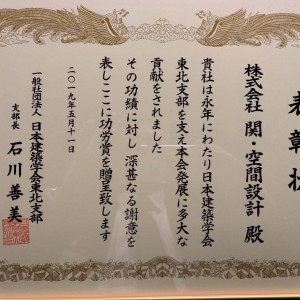 表彰状
株式会社 関・空間設計 殿
貴社は永年にわたり日本建築学会
東北支部を支え本会発展に多大な
貢献をされました
その功績に対し 深甚なる謝意を
表しここに功労賞を贈呈致します
二〇一九年五月十一日
一般社団法人 日本建築学会東北支部
支部長 石川善美